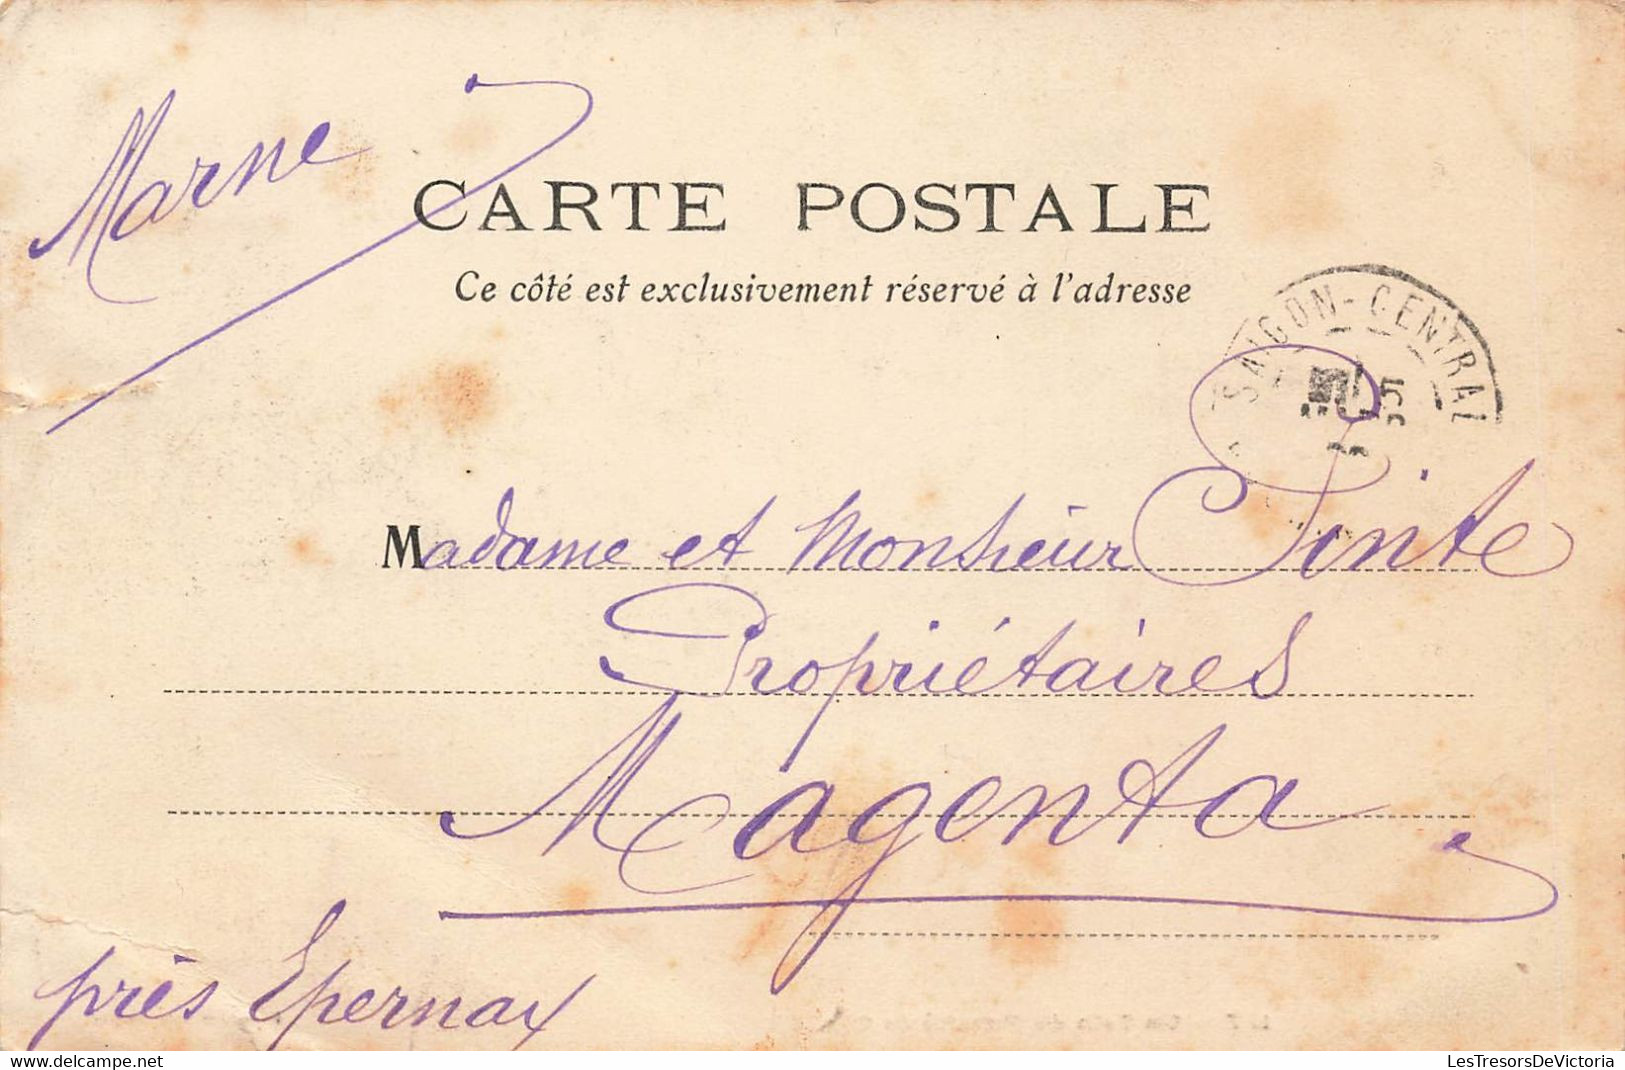 Marne
CARTE POSTALE
Ce côté est exclusivement réservé à l'adresse
SAIGON-CENTRAL
Madame et Monsieur Pinte
Propriétaires
Magenta
près Epernay
www.delcampe.net
LesTresorsDeVictoria